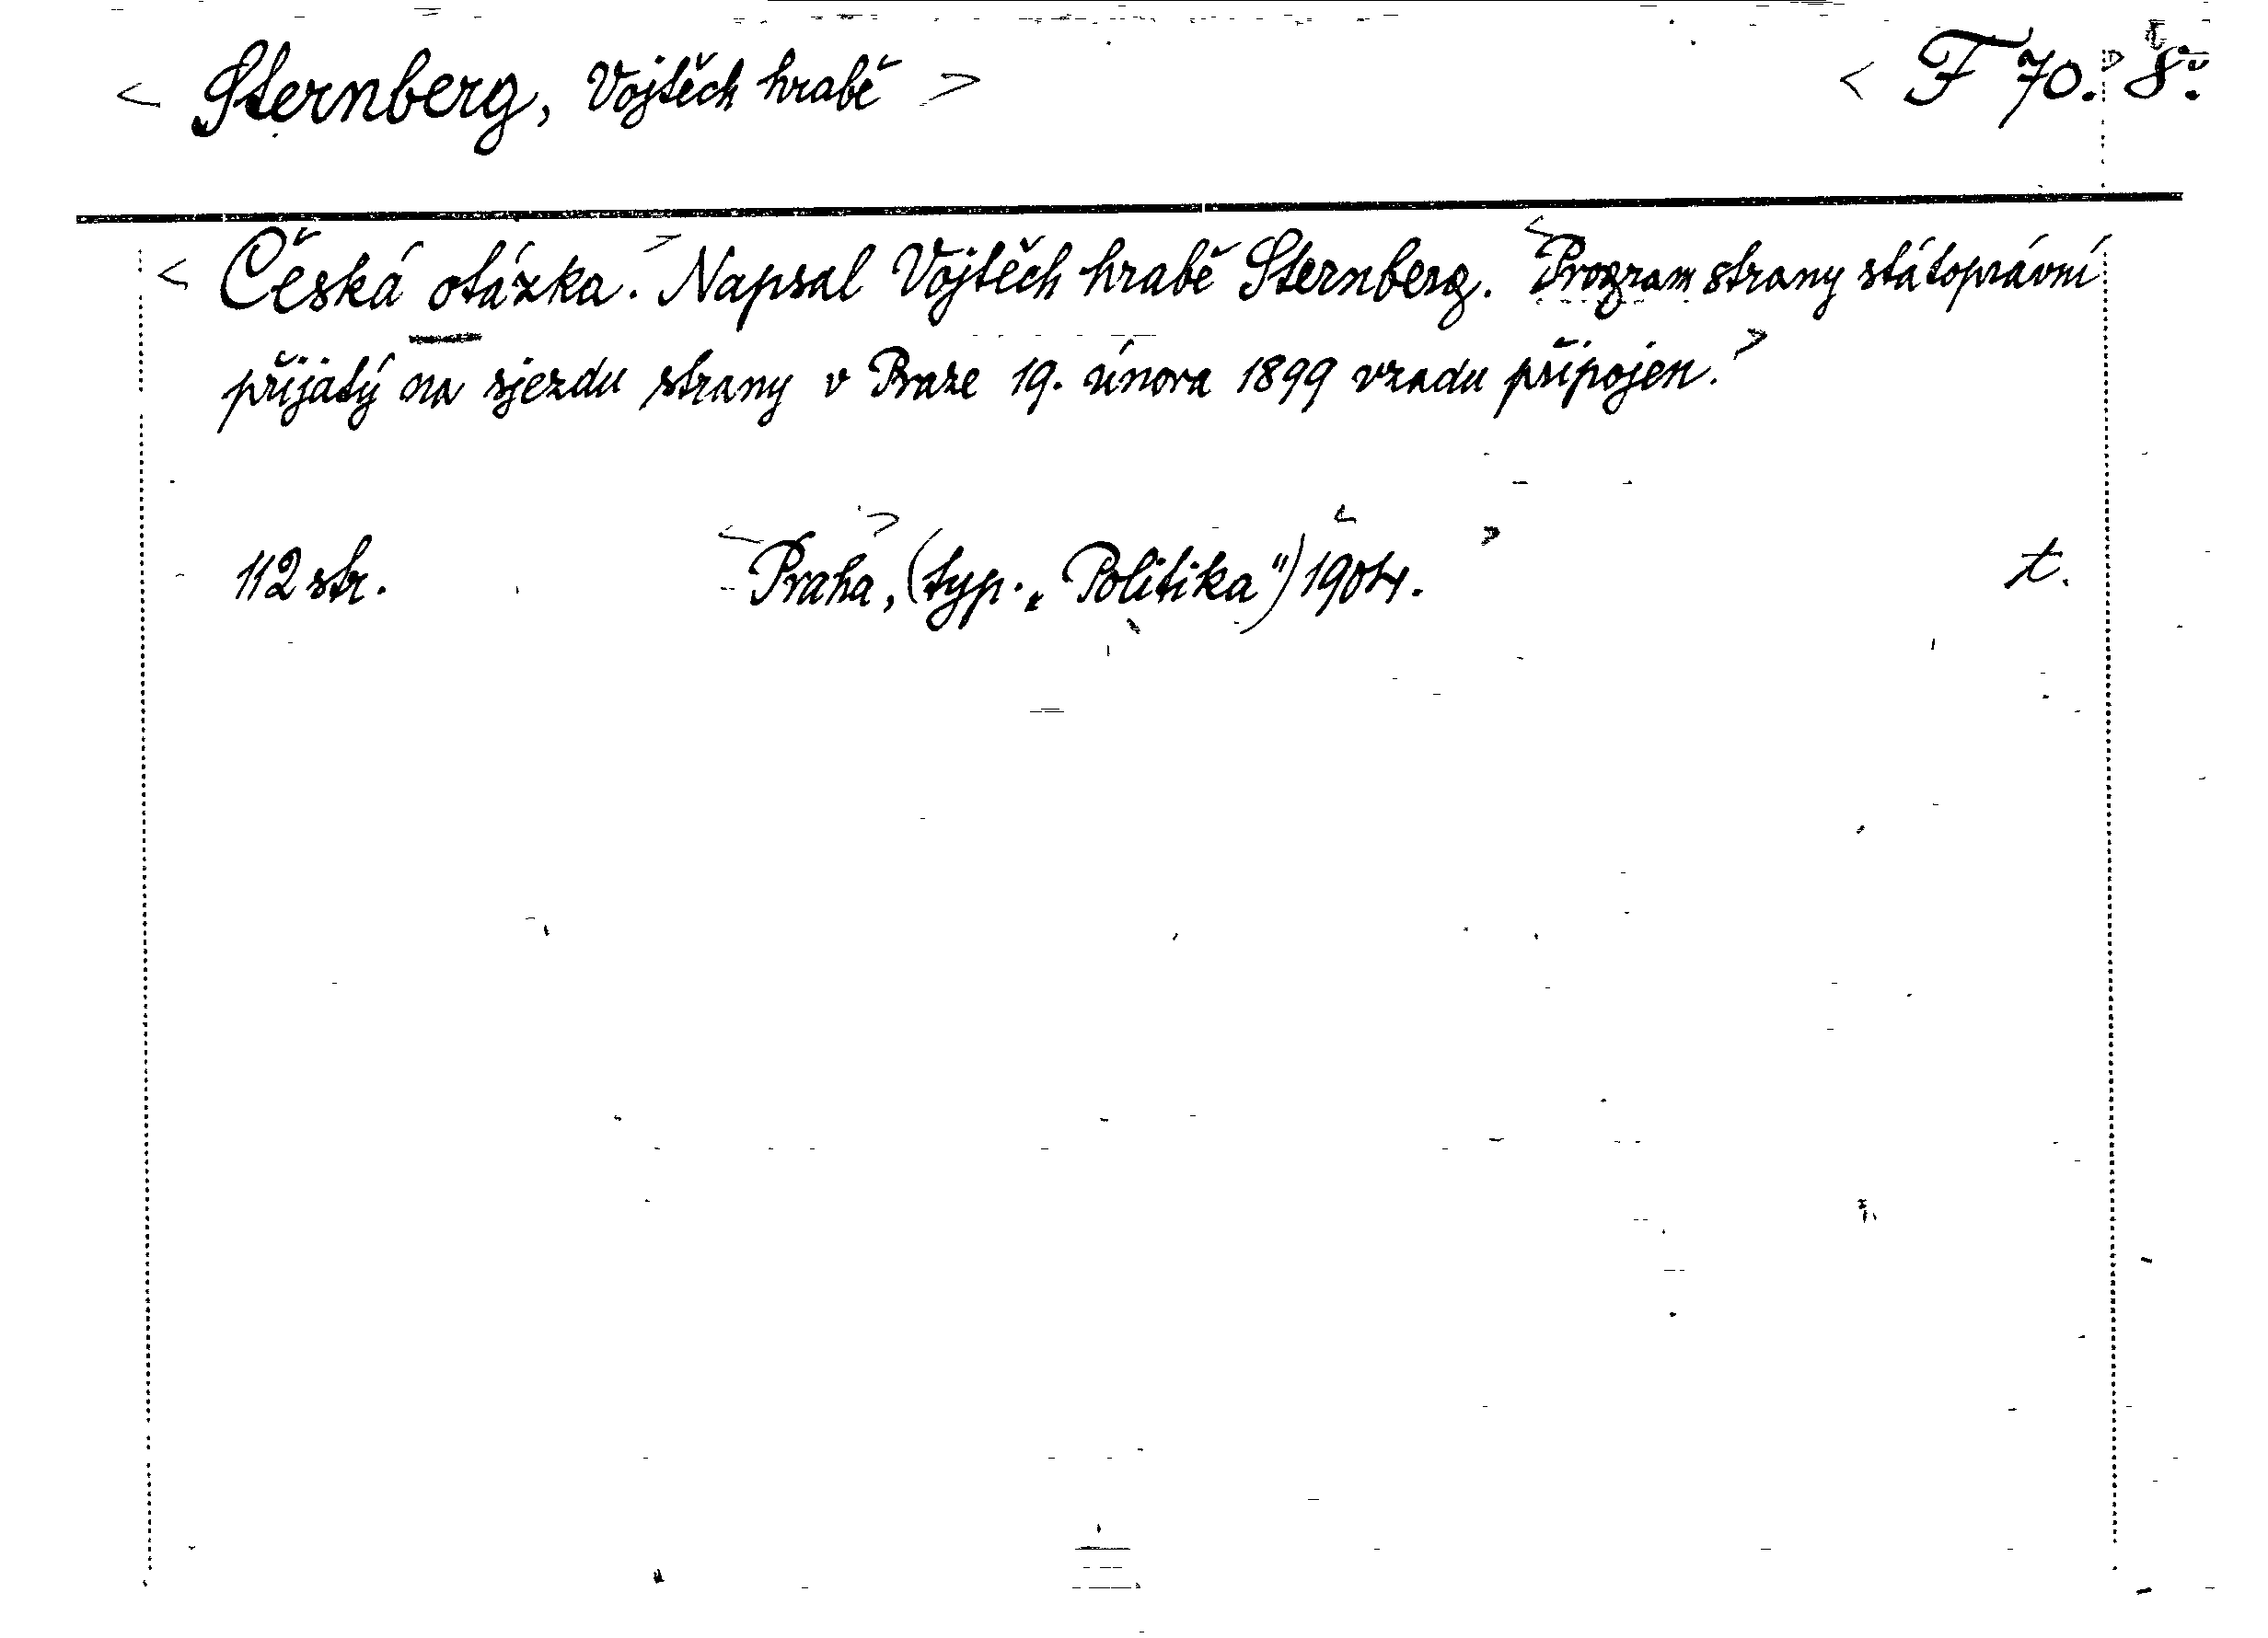 < Sternberg, Vojtěch hrabě > < F 70.> 8º.
< Česká otázka.> Napsal Vojtěch hrabě Sternberg. <Program strany státoprávní
přijatý na sjezdu strany v Praze 19. února 1899 vzadu připojen.>
112 str. <Praha,> (typ. „Politika") <1904.> t.